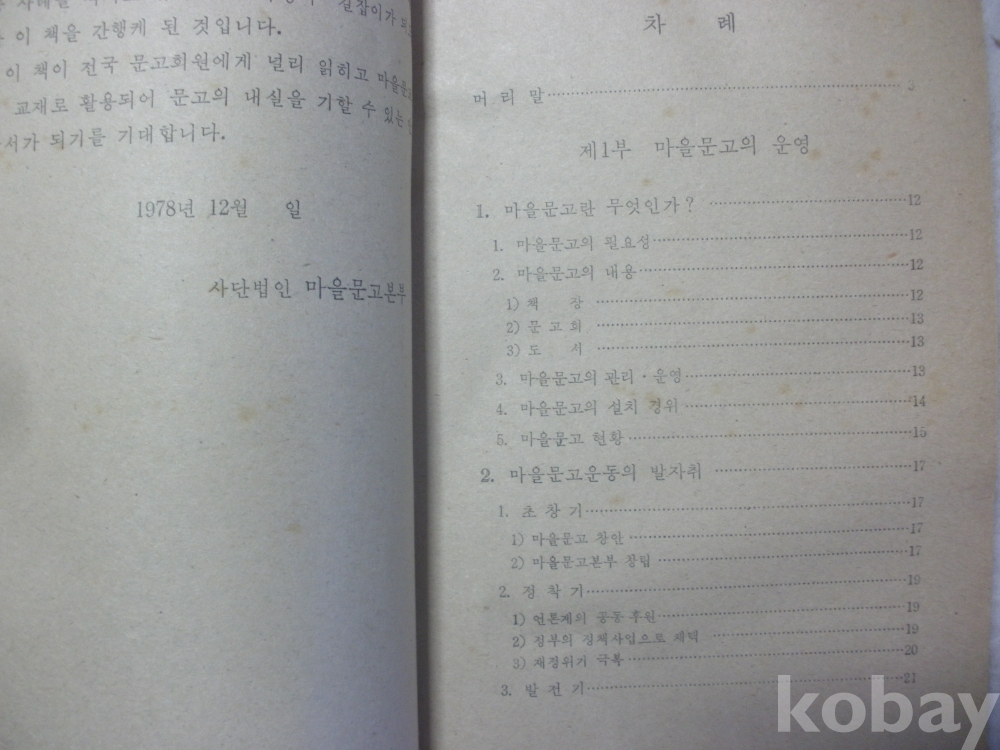 이 책을 간행케 된 것입니다.
이 책이 전국 문고회원에게 널리 읽히고
교재로 활용되어 문고의 내실을 기할 수 있는
서가 되기를 기대합니다.
1978년 12월 일
사단법인 마을문고본부
차 례
머 리 말 3
제1부 마을문고의 운영
1. 마을문고란 무엇인가? 12
1. 마을문고의 필요성 12
2. 마을문고의 내용 12
1) 책 장 12
2) 문 고 회 13
3) 도 서 13
3. 마을문고의 관리·운영 13
4. 마을문고의 설치 경위 14
5. 마을문고 현황 15
2. 마을문고운동의 발자취 17
1. 초 창 기 17
1) 마을문고 창안 17
2) 마을문고본부 창립 17
2. 정 착 기 19
1) 언론계의 공동 후원 19
2) 정부의 정책사업으로 채택 19
3) 재정위기 극복 20
3. 발 전 기 21
kobay